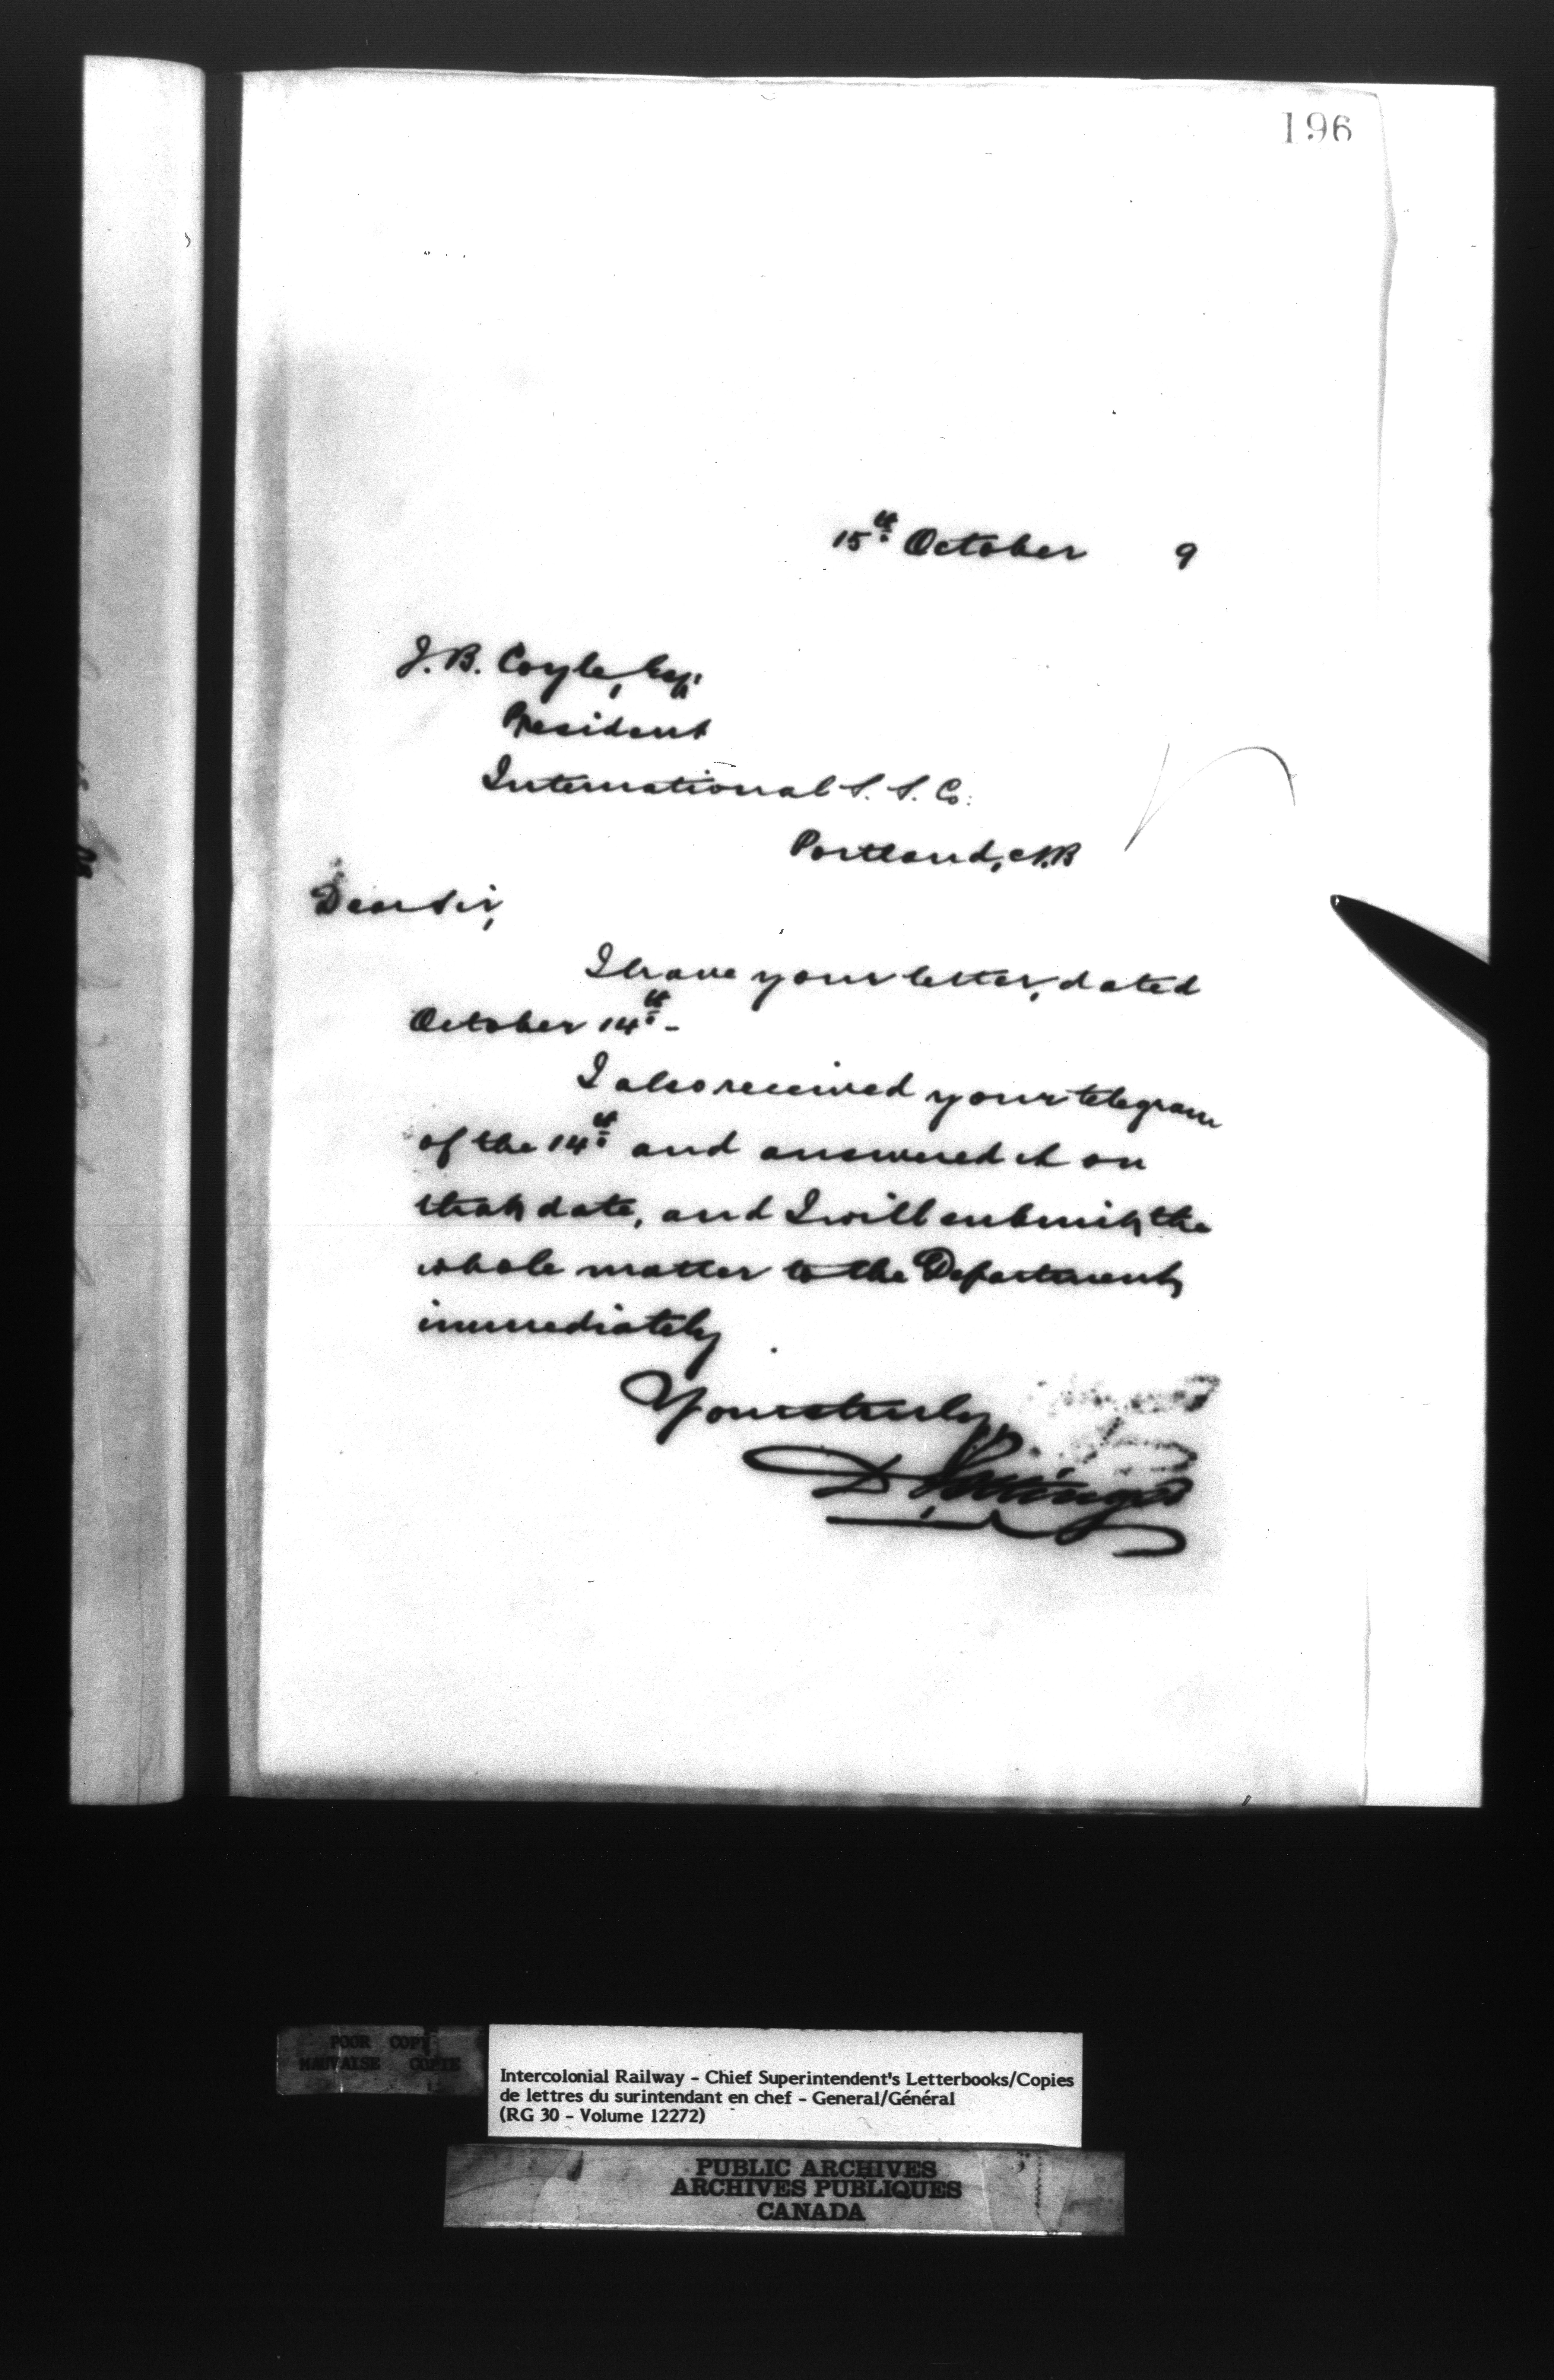 196
15th October 9
J. B. Coyle, Esq.
President
International S. S. Co.
Portland, N.B
Dear Sir,
I have your letter, dated
October 14th -
I also received your telegram
of the 14th and answered it on
that date, and I will submit the
whole matter to the Department
immediately.
Yours truly
D Pottinger
POOR COPY
MAUVAISE COPIE
Intercolonial Railway - Chief Superintendent's Letterbooks/Copies
de lettres du surintendant en chef - General/Général
(RG 30 - Volume 12272)
PUBLIC ARCHIVES
ARCHIVES PUBLIQUES
CANADA